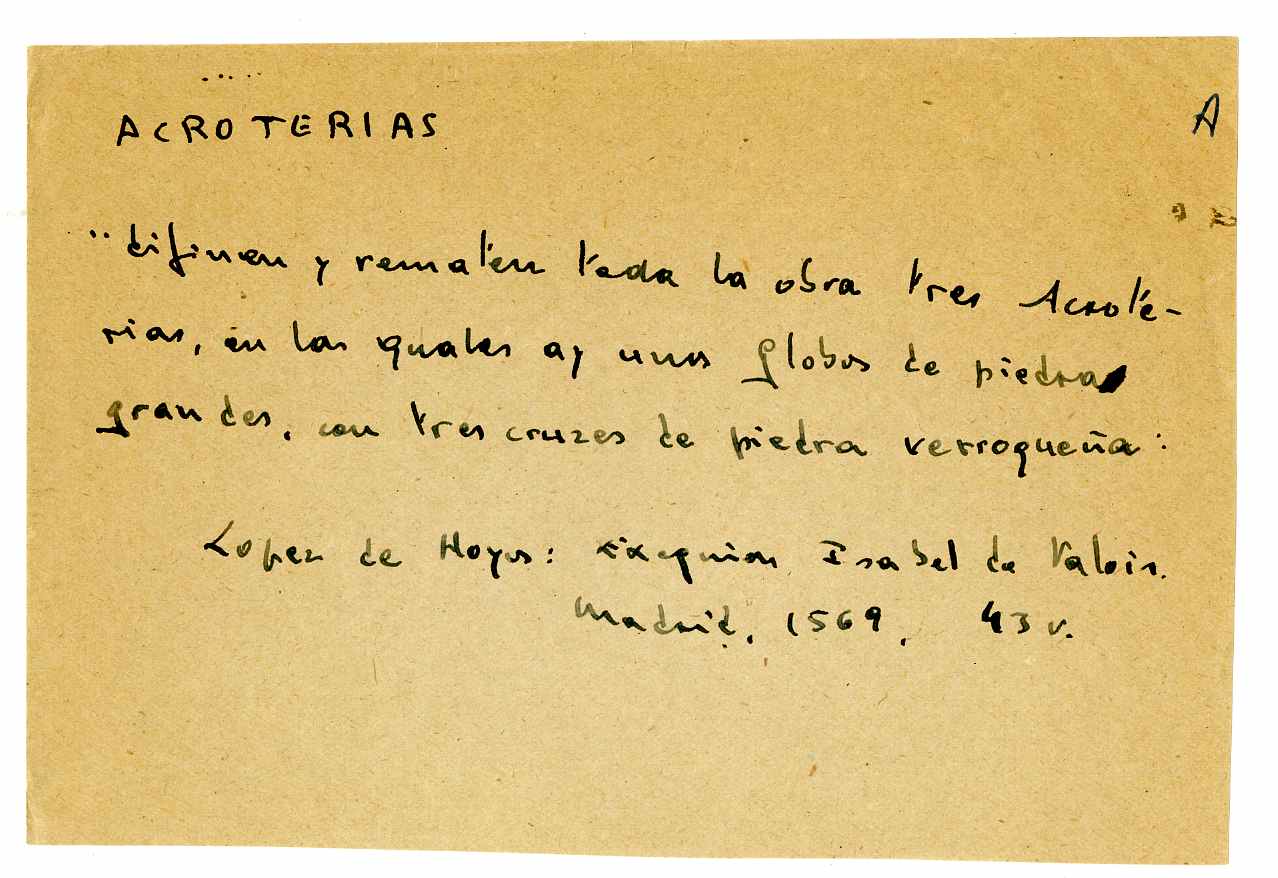 ACROTERIAS
A
"difinen y rematen toda la obra tres Acrote-
rias, en las quales ay unos globos de piedra
grandes, con tres cruzes de piedra verroqueña:
Lopez de Hoyos: Exequias Isabel de Valois.
Madrid, 1569, 43 v.